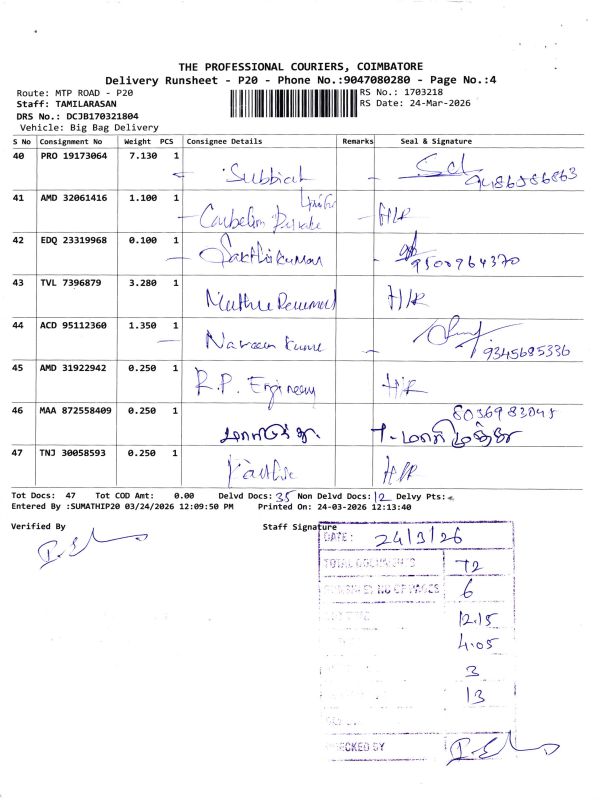 THE PROFESSIONAL COURIERS, COIMBATORE
Delivery Runsheet - P20 - Phone No.:9047080280 - Page No.:4
Route: MTP ROAD - P20
RS No.: 1703218
Staff: TAMILARASAN
RS Date: 24-Mar-2026
DRS No.: DCJB170321804
Vehicle: Big Bag Delivery
S No Consignment No Weight PCS Consignee Details Remarks Seal & Signature
40 PRO 19173064 7.130 1 Subbiah 9486586863
41 AMD 32061416 1.100 1 Private H/R
42 EDQ 23319968 0.100 1 Sakthikumar 9500964370
43 TVL 7396879 3.280 1 H/R
44 ACD 95112360 1.350 1 Naveen Kumar 9345685336
45 AMD 31922942 0.250 1 R.P. Engineery H/R
46 MAA 872558409 0.250 1
47 TNJ 30058593 0.250 1 H/R
Tot Docs: 47 Tot COD Amt: 0.00 Delvd Docs: 35 Non Delvd Docs: 12 Delvy Pts:
Entered By :SUMATHIP20 03/24/2026 12:09:50 PM Printed On: 24-03-2026 12:13:40
Verified By
Staff Signature
DATE: 24/3/26
TOTAL DOCUMENTS 72
6
12.15
4.05
3
13
CHECKED BY